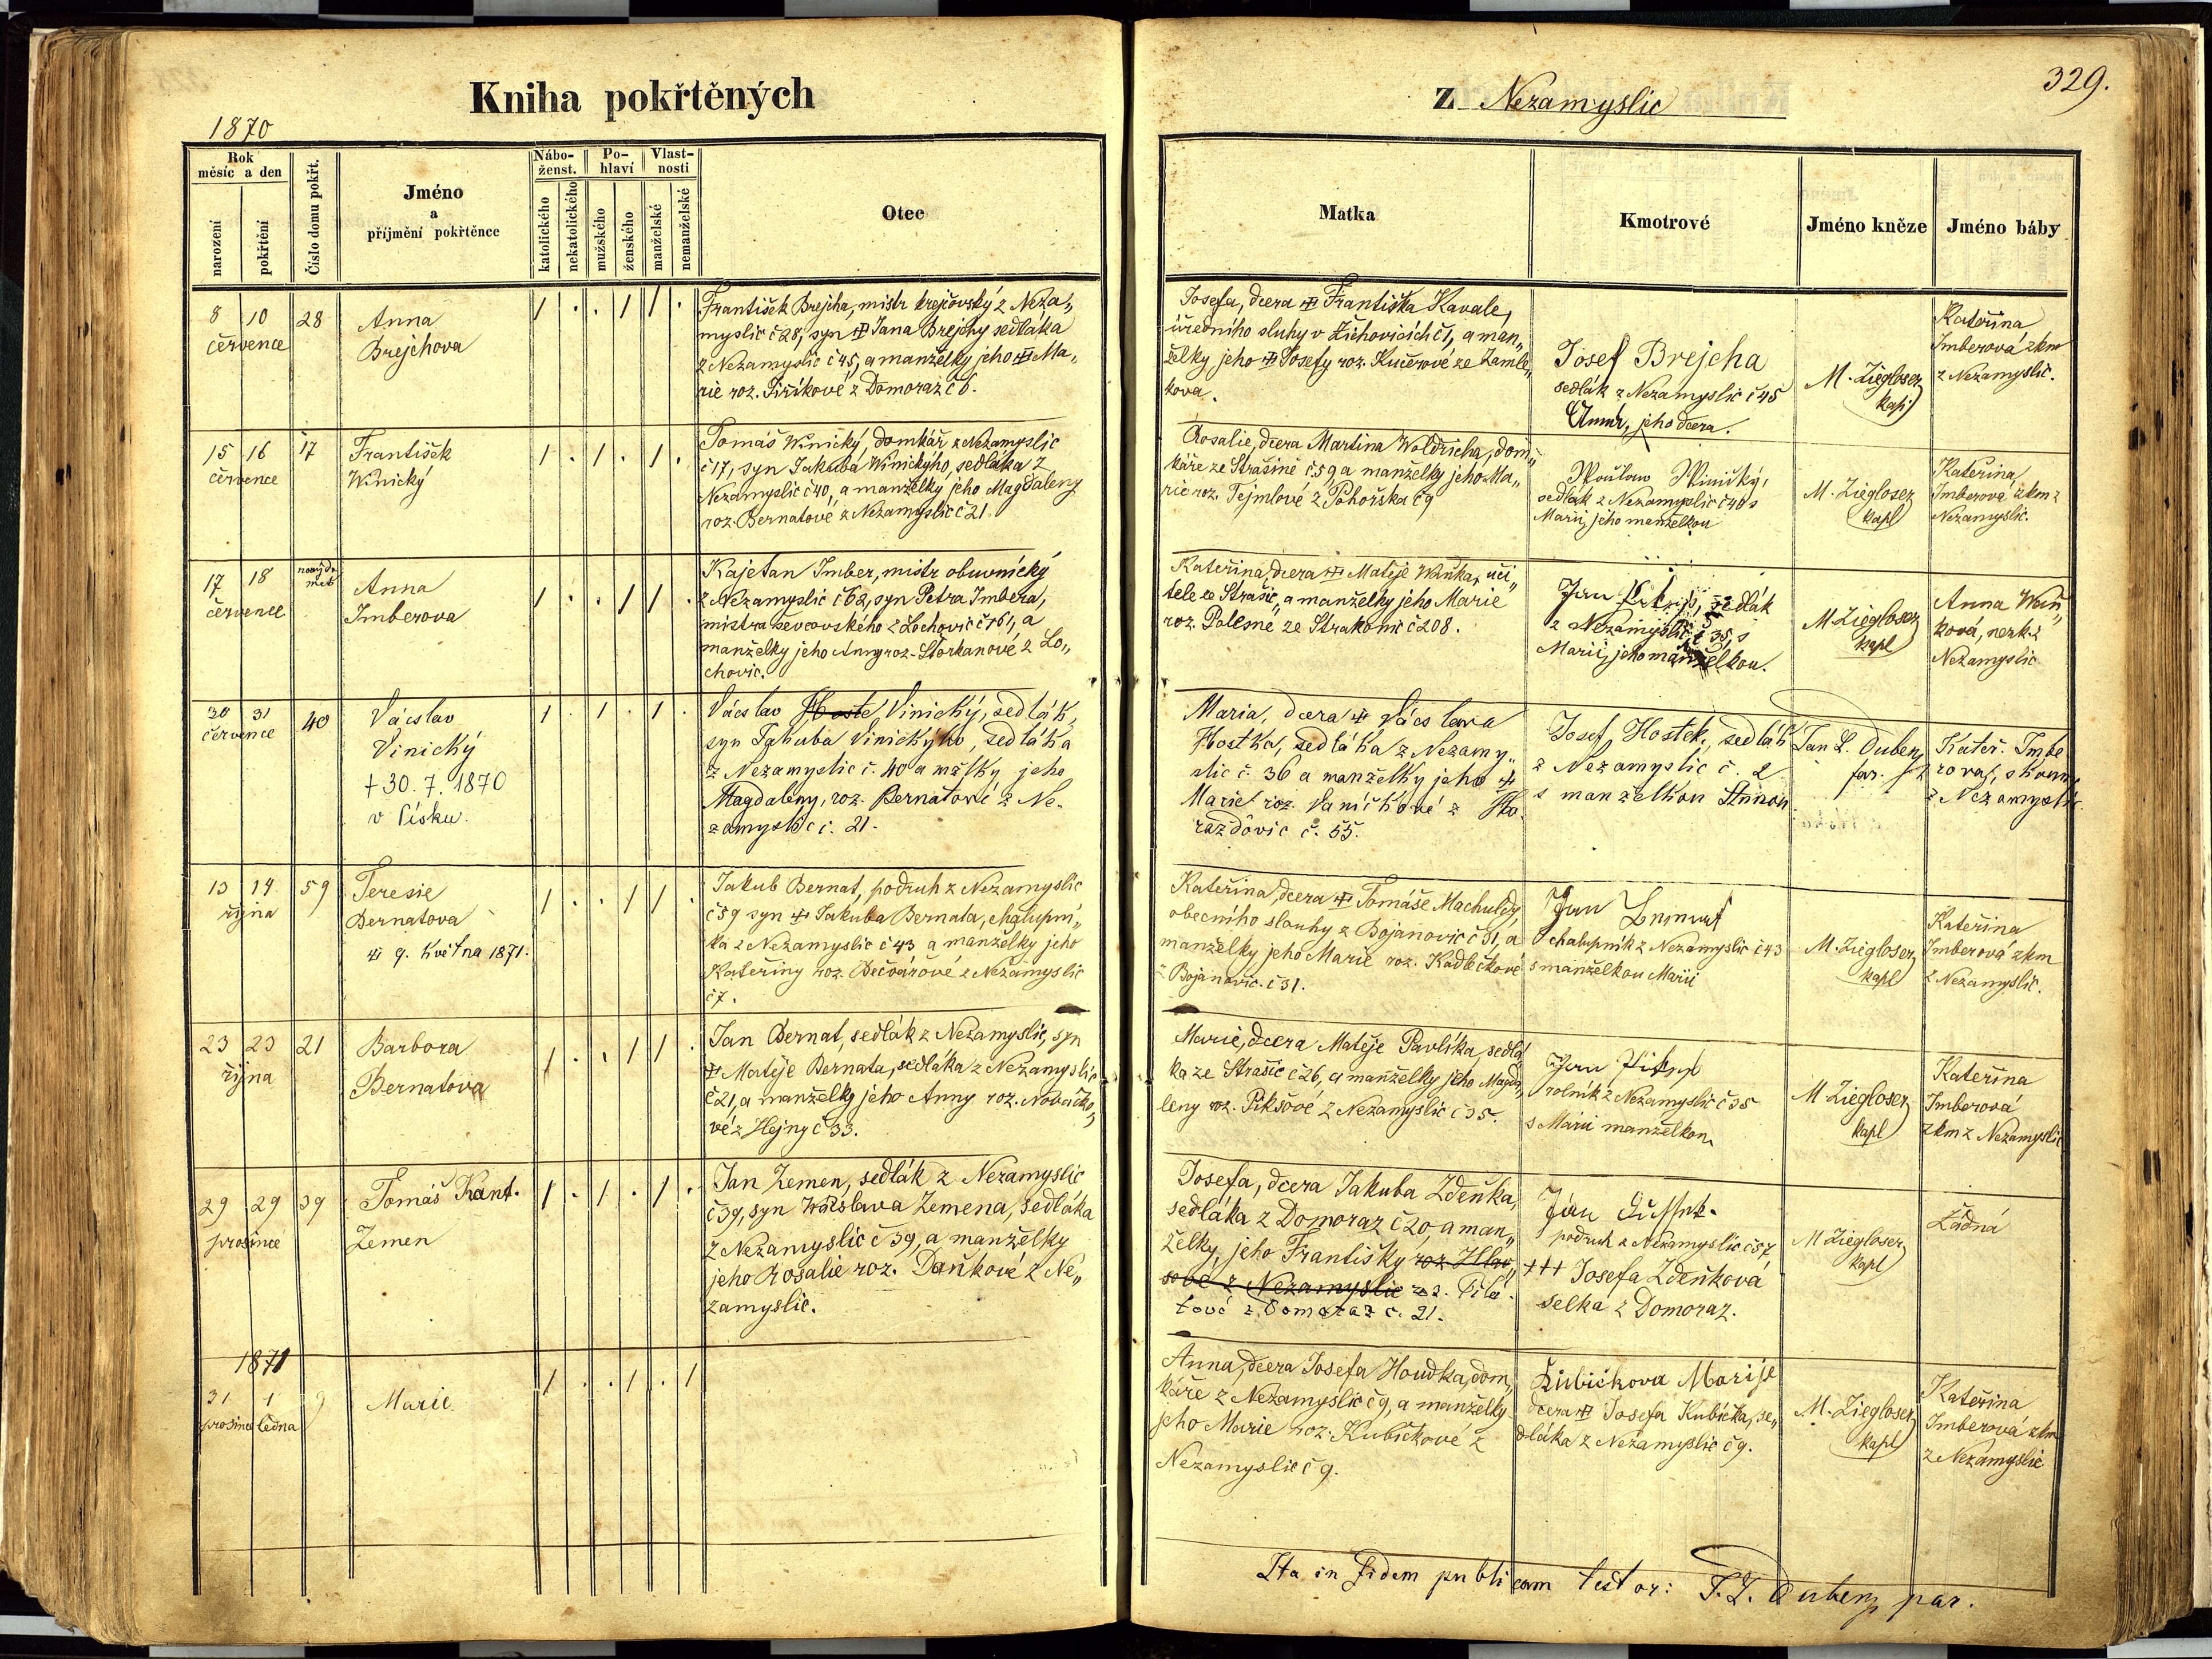 Kniha pokřtěných
z Nezamyslic
329.
1870
Rok
měsíc a den
narození
pokřtění
Číslo domu pokřt.
Jméno
a
příjmění pokřtěnce
Nábo-
ženst.
katolického
nekatolického
Po-
hlaví
mužského
ženského
Vlast-
nosti
manželské
nemanželské
Otec
Matka
Kmotrové
Jméno kněze
Jméno báby
8 10
července
28
Anna
Brejchova
1 . . 1 1 .
František Brejcha, mistr krejčovský z Neza„
myslic č 28, syn Jana Brejchy sedláka
z Nezamyslic č 45, a manželky jeho Ma„
rie roz. Jiříkové z Domoraz č 6.
Josefa, dcera Františka Kavale,
úředního sluhy v Žichovicích č 1, a man„
želky jeho Josefy roz. Kučerové ze Zamle„
kova.
Josef Brejcha
sedlák z Nezamyslic č 45
Anna, jeho dcera.
M. Ziegloser
kapl
Kateřina
Imberová zkm
z Nezamyslic.
15 16
července
17
František
Winický
1 . 1 . 1 .
Tomáš Winický, domkář z Nezamyslic
č 17, syn Jakuba Winickýho, sedláka z
Nezamyslic č 40, a manželky jeho Magdaleny
roz. Bernatové z Nezamyslic č 21.
Rosalie, dcera Martina Woldricha, dom„
káře ze Strašině č 59 a manželky jeho Ma„
rie roz. Tejmlové z Pohorska č 9
sedlák z Nezamyslic č 40 s
Marii, jeho manželkou
M. Ziegloser
kapl
Kateřina
Imberová zkm z
Nezamyslic.
17 18
července
Anna
Imberova
1 . . 1 1 .
Kajetan Imber, mistr obuvnický
z Nezamyslic č 62, syn Petra Imbera,
mistra ševcovského z Lochovic č 161, a
manželky jeho Anny roz. Štorkanové z Lo„
chovic.
Kateřina, dcera Matěje Waňka, uči„
tele ze Strašic, a manželky jeho Marie
roz. Polesné ze Strakonic č 208.
Jan sedlák
z Nezamyslic č 35, s
Marii, jeho manželkou.
M Ziegloser
kapl
Anna Waň„
ková, nezk. z
Nezamyslic
30 31
července
40
Václav
Vinický
+ 30. 7. 1870
v Písku.
1 . 1 . 1 .
Václav Hoste Vinický, sedlák,
syn Jakuba Vinickýho, sedláka
z Nezamyslic č. 40 a mžlky jeho
Magdaleny, roz. Bernatové z Ne-
zamyslic č. 21.
Maria, dcera Václava
Hostka, sedláka z Nezamy„
slic č. 36 a manželky jeho
Marie roz. Vaníčkové z Ho-
razdovic č. 55.
Josef Hostek, sedlák
z Nezamyslic č. 2
s manželkou Annou
Jan L. Duben
far.
Kateř. Imbe
rova, zkouш.
z Nezamyslic.
13 14
října
59
Teresie
Bernatova
9. Května 1871.
1 . . 1 1 .
Jakub Bernat, podruh z Nezamyslic
č 59 syn Jakuba Bernata, chalupní„
ka z Nezamyslic č 43 a manželky jeho
Kateřiny roz. Bečvářové z Nezamyslic
č 7.
Kateřina, dcera Tomáše Machuldy,
obecního slouhy z Bojanovic č 31, a
manželky jeho Marie roz. Kadlečkové
z Bojanovic. č 31.
Jan
chalupník z Nezamyslic č 43
s manželkou Marii
M. Ziegloser
kapl
Kateřina
Imberová zkm
z Nezamyslic.
23 23
října
21
Barbora
Bernatova
1 . . 1 1 .
Jan Bernat, sedlák z Nezamyslic, syn
Matěje Bernata, sedláka z Nezamyslic
č 21, a manželky jeho Anny roz. Nováčko„
vé z Hejny č 33.
Marie, dcera Matěje Pavlíka, sedlá
ka ze Strašic č 26, a manželky jeho Magda„
leny roz. Piksové z Nezamyslic č 35.
Jan
rolník z Nezamyslic č 35
s Marii manželkou
M Ziegloser
kapl
Kateřina
Imberová
zkm z Nezamyslic
29 29
prosince
39
Tomáš Kant.
Zemen
1 . 1 . 1 .
Jan Zemen, sedlák z Nezamyslic
č 39, syn Wáclava Zemena, sedláka
z Nezamyslic č 39, a manželky
jeho Rosalie roz. Daňkové z Ne„
zamyslic.
Josefa, dcera Jakuba Zdeňka,
sedláka z Domoraz č 20, a man„
želky, jeho Františky roz. Hlav„
sové z Nezamyslic roz. Pilá-
tové z Domoraz č. 21.
Jan
podruh z Nezamyslic č 57
+++ Josefa Zdeňková
selka z Domoraz.
M Ziegloser
kapl
Žádná
1871
31 1
prosince ledna
9
Marie
1 . . 1 . 1
Anna, dcera Josefa Houdka, dom„
káře z Nezamyslic č 9, a manželky
jeho Marie roz. Kubičkové z
Nezamyslic č 9.
Kubičkova Marije
dcera Josefa Kubička, se„
dláka z Nezamyslic č 9.
M. Ziegloser
kapl
Kateřina
Imberová zkm
z Nezamyslic
Ita in fidem publicam testor: J. L. Duben par.